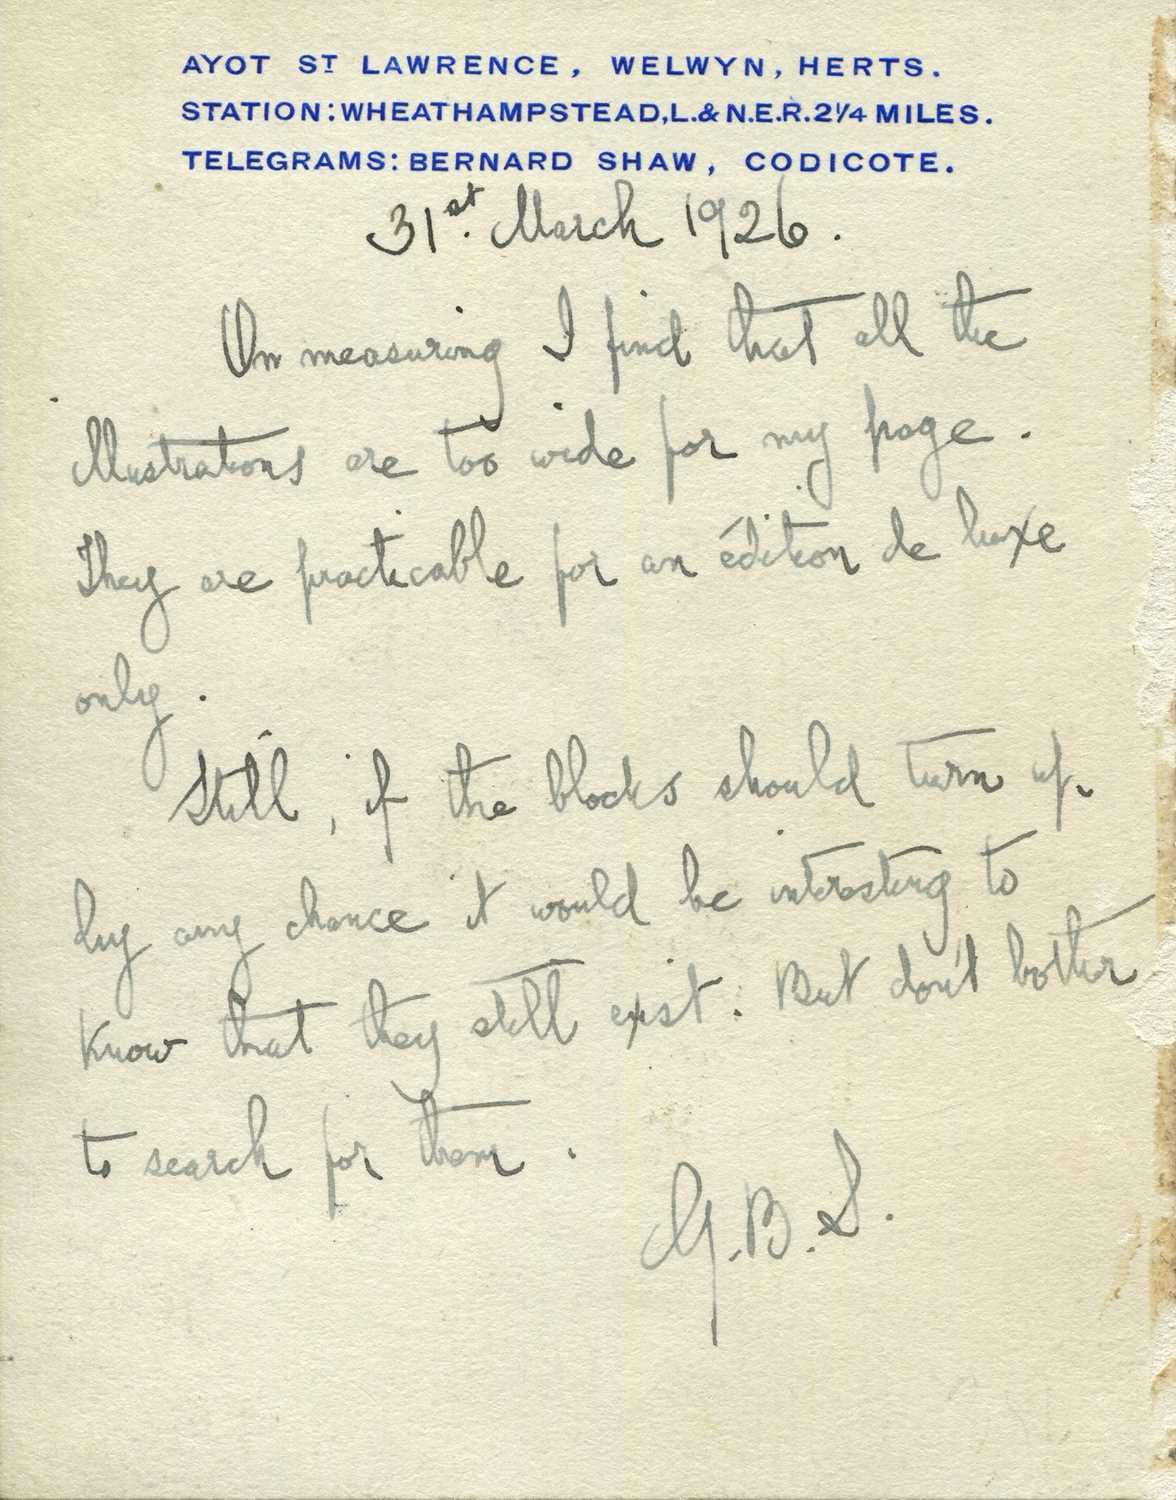 AYOT ST LAWRENCE, WELWYN, HERTS.
STATION: WHEATHAMPSTEAD, L. & N.E.R. 2¼ MILES.
TELEGRAMS: BERNARD SHAW, CODICOTE.
31st. March 1926.
On measuring I find that all the
illustrations are too wide for my page.
They are practicable for an édition de luxe
only.
Still, if the blocks should turn up
by any chance it would be interesting to
know that they still exist. But don't bother
to search for them.
G.B.S.